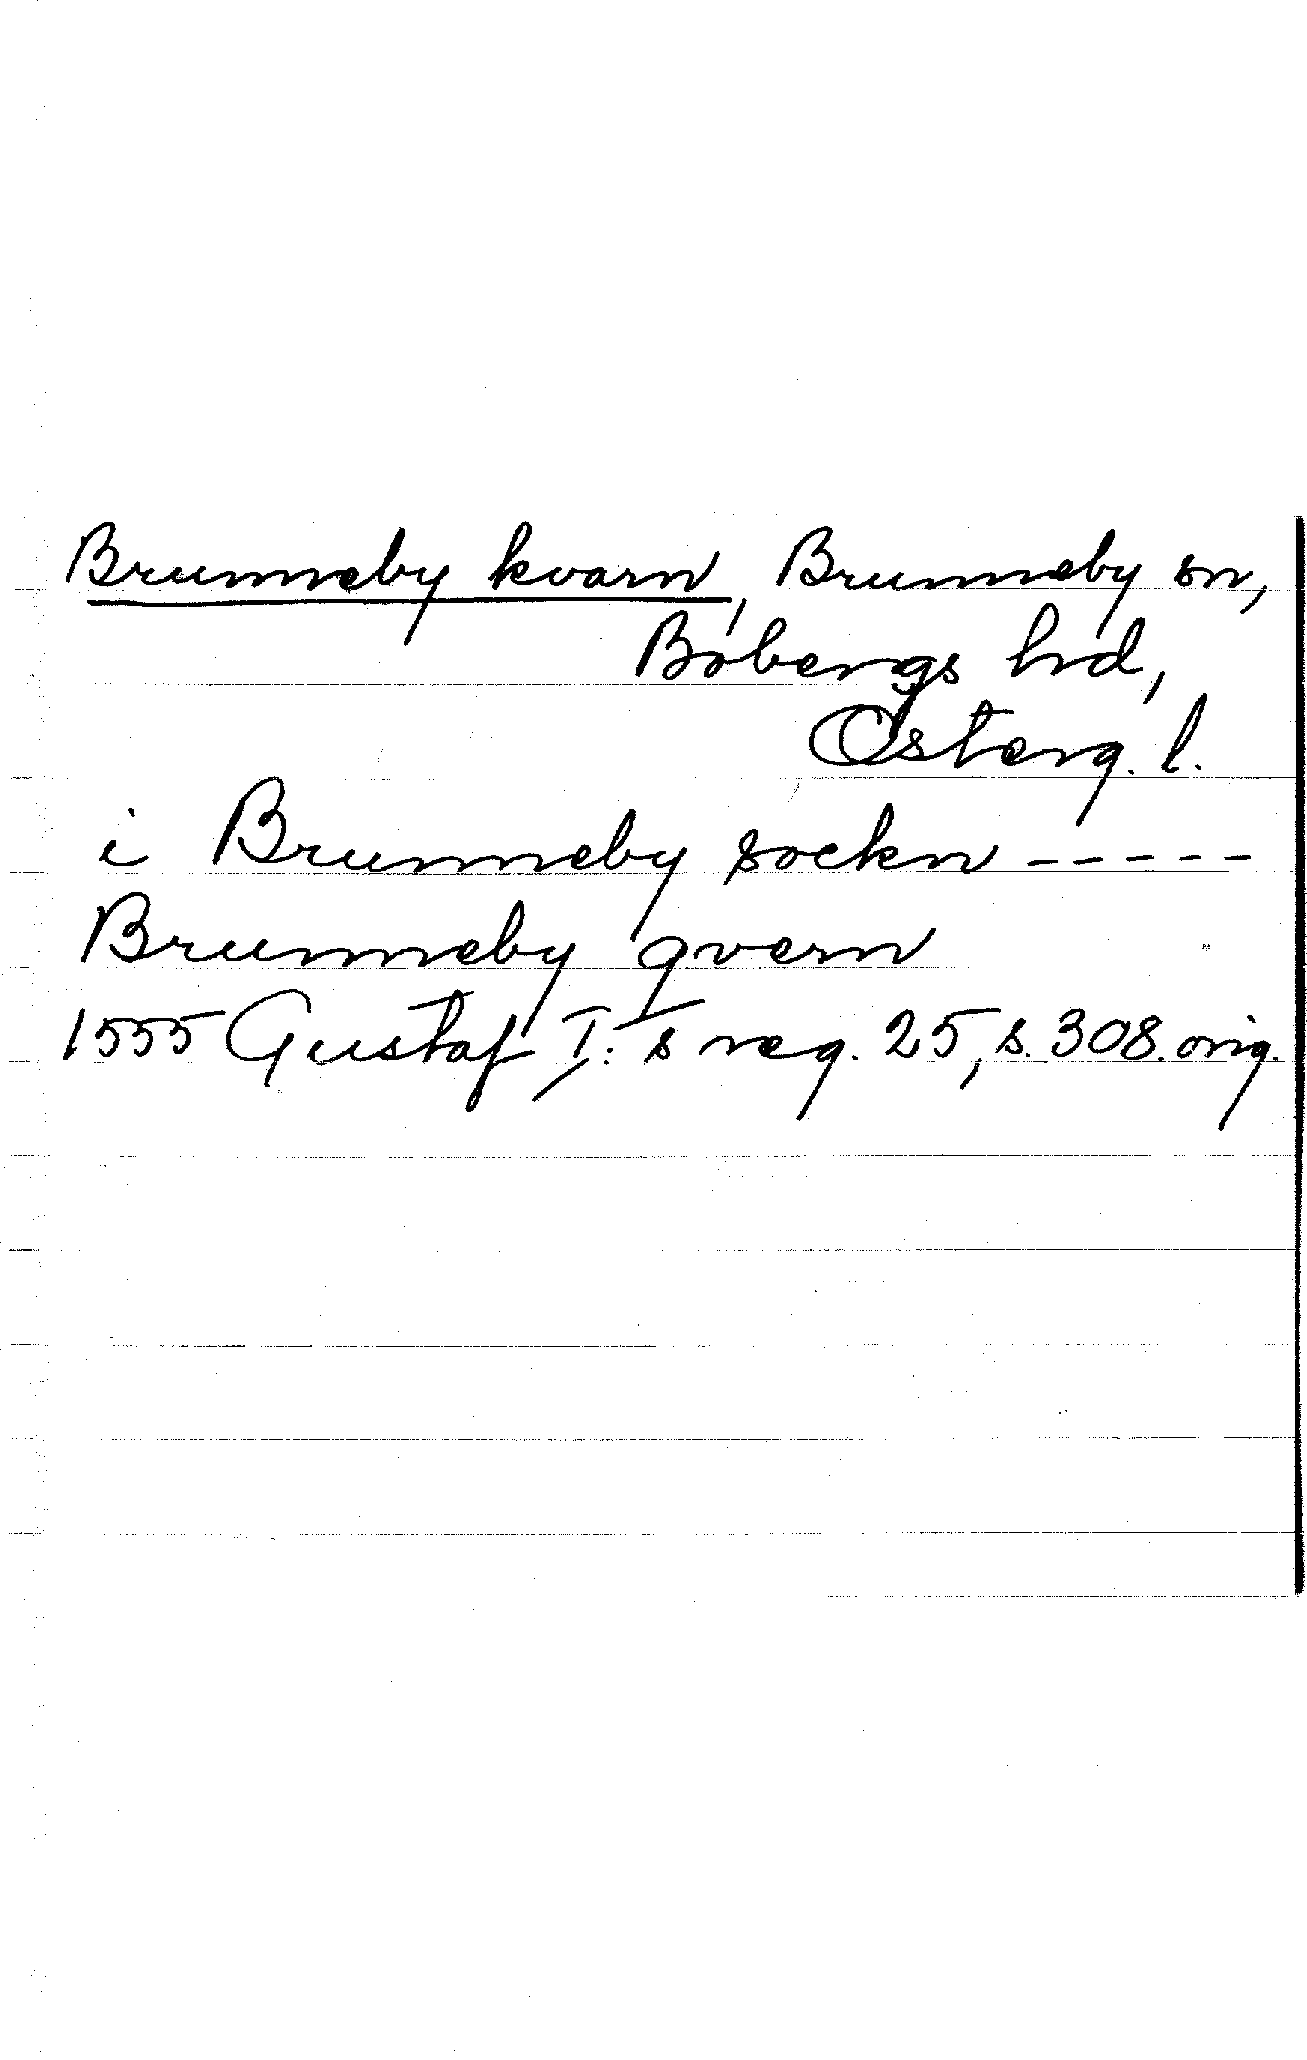 Brunneby kvarn, Brunneby sn,
Bobergs hrd,
Österg. l.
i Brunneby sockn -----
Brunneby qvern
1555 Gustaf I:s reg. 25, s. 308. orig.